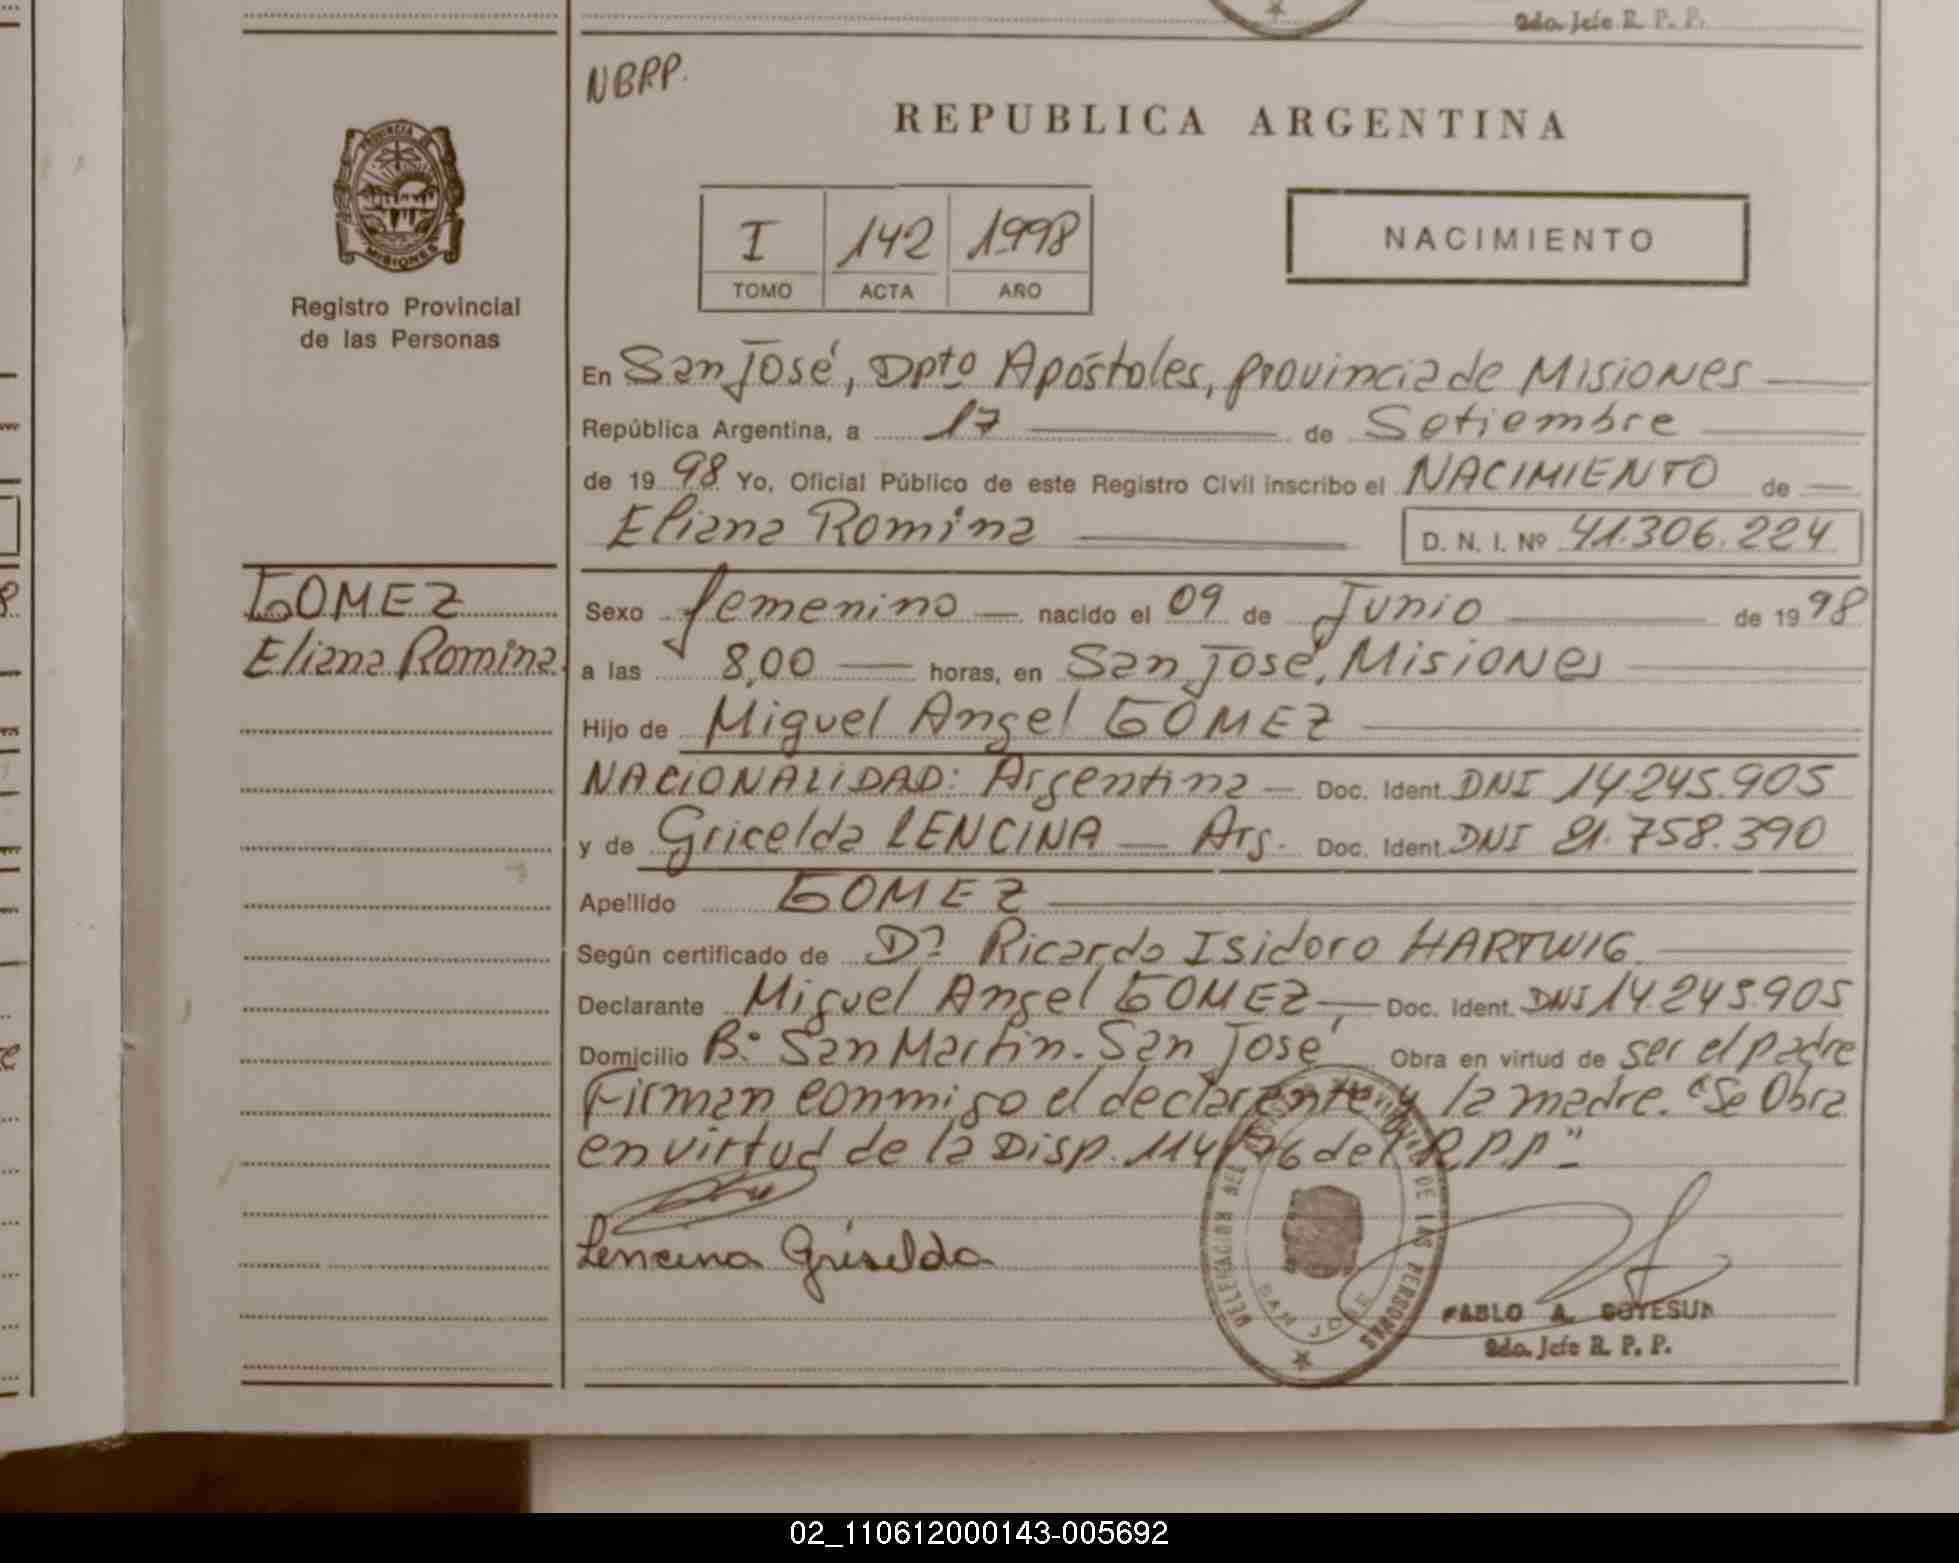 2do. Jefe R. P. P.
NBRP.
REPUBLICA ARGENTINA
PROVINCIA DE
MISIONES
Registro Provincial
de las Personas
I 142 1998
TOMO ACTA AÑO
NACIMIENTO
En San José, Dpto Apóstoles, provincia de Misiones
República Argentina, a 17 de Setiembre
de 1998 Yo, Oficial Público de este Registro Civil inscribo el NACIMIENTO de
Eliana Romina D. N. I. Nº 41.306.224
GOMEZ
Eliana Romina
Sexo femenino nacido el 09 de Junio de 1998
a las 8,00 horas, en San José, Misiones
Hijo de Miguel Angel GOMEZ
NACIONALIDAD: Argentina Doc. Ident. DNI 14.245.905
y de Gricelda LENCINA Arg. Doc. Ident. DNI 21.758.390
Apellido GOMEZ
Según certificado de Dr Ricardo Isidoro HARTWIG
Declarante Miguel Angel GOMEZ, Doc. Ident. DNI 14.245.905
Domicilio Bº San Martín. San José Obra en virtud de ser el padre
Firman conmigo el declarante y la madre. "Se Obra
en virtud de la Disp. 114/76 del R.P.P"
Lencina Griselda
DELEGACION DEL REGISTRO PROVINCIAL DE LAS PERSONAS
SAN JOSE
PABLO A.
2do. Jefe R. P. P.
02_110612000143-005692